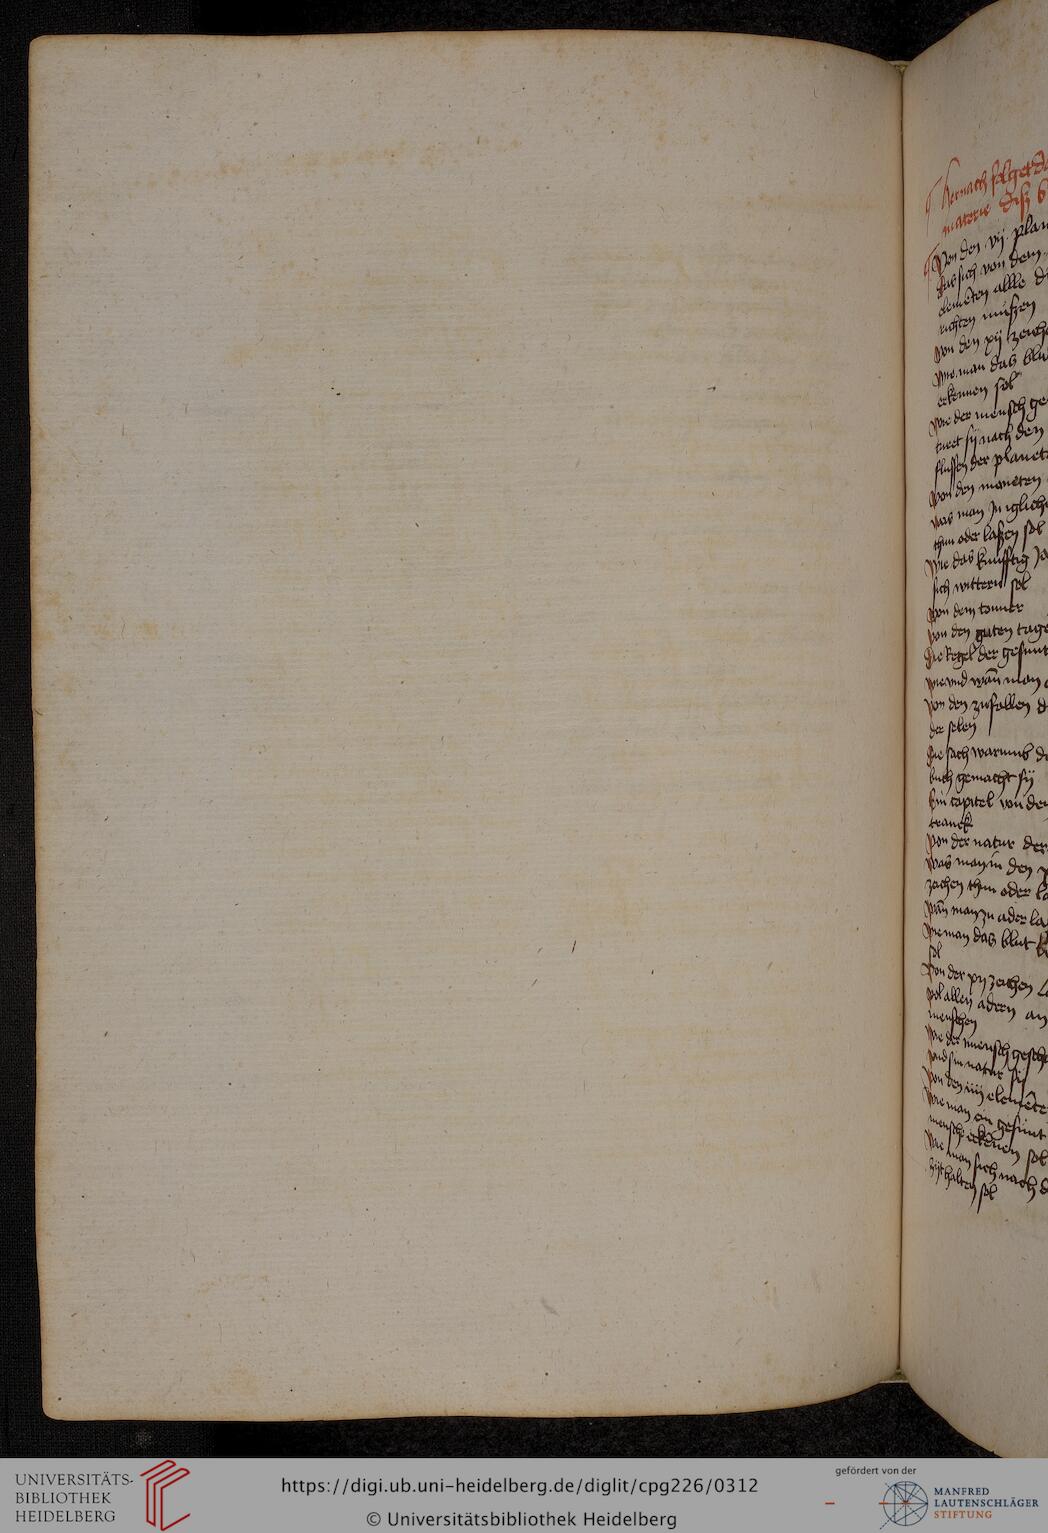 Hernach folget d
materie disz b
Von den vij plan
das sich von dem
elemēten alle di
richten müszen
Von den xij zeich
Wie man das blut
erkennen sol
Wie der mensch ge
sy nach den
flussen der planet
Von den moneten
was man Jn iglich
thun oder laszen sol
Wie das kunfftig Ja
sich wittern sol
Von dem tonner
Von den guten tage
Die Regel der gesunt
Wie vnd wān man
Von den zufallen d
der selen
Die sach warumb d
buch gemacht sij
Ein capitel von de
tranck
Von der natur der
Was man in den
zeichen thun oder la
Wān man zu ader la
Wie man das blut
sol
Von der xij zeichen
Von allen adern an
menschen
Wie der mensch gesch
vnd sin natur sij
Von den iiij elemēte
Wie man ein gesunt
mensche erkēnen sol
Wie man sich nach d
zijt halten sol
UNIVERSITÄTS-
BIBLIOTHEK
HEIDELBERG
https://digi.ub.uni-heidelberg.de/diglit/cpg226/0312
© Universitätsbibliothek Heidelberg
gefördert von der
MANFRED
LAUTENSCHLÄGER
STIFTUNG